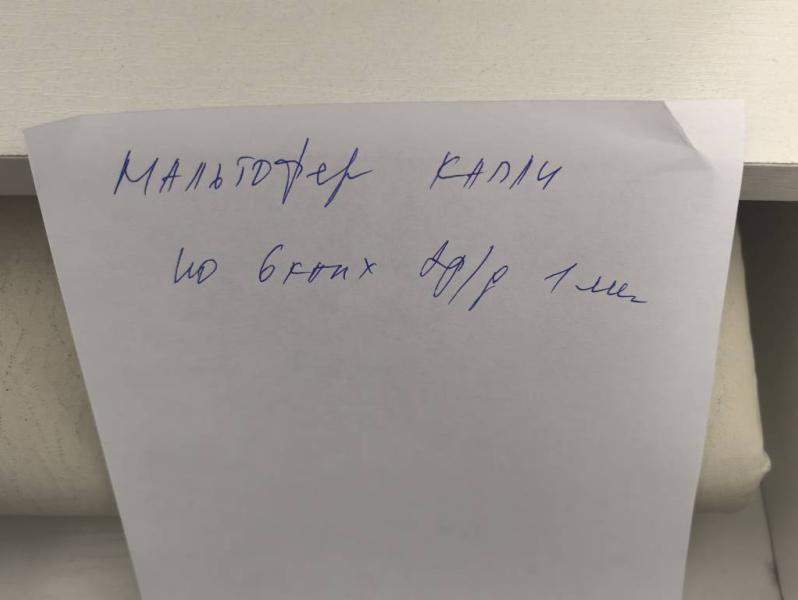 Мальтофер капли
по 6 кап х 2р/д 1 мес